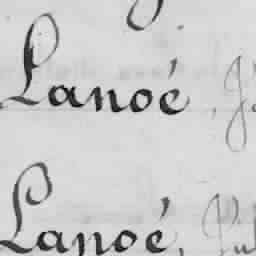 Lanoé,
Lanoé,